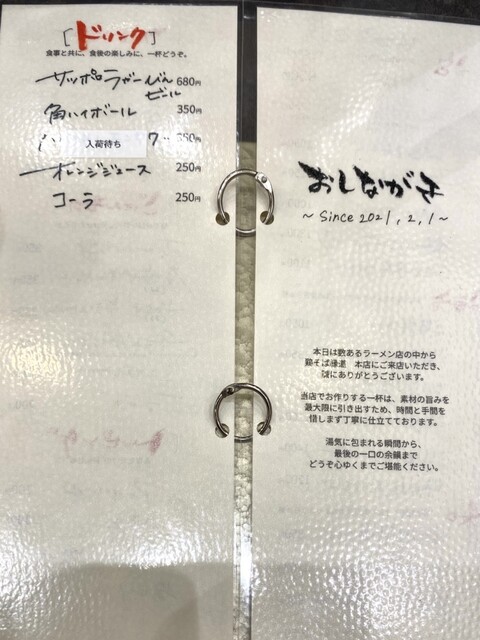 [ドリンク]
食事と共に、食後の楽しみに、一杯どうぞ。
サッポロラガーびん
ビール 680円
角ハイボール 350円
入荷待ち 350円
オレンジジュース 250円
コーラ 250円
おしながき
～ Since 2021, 2, 1 ～
本日は数あるラーメン店の中から
鶏そば縁道 本店にご来店いただき、
誠にありがとうございます。
当店でお作りする一杯は、素材の旨みを
最大限に引き出すため、時間と手間を
惜しまず丁寧に仕立てております。
湯気に包まれる瞬間から、
最後の一口の余韻まで
どうぞ心ゆくまでご堪能ください。